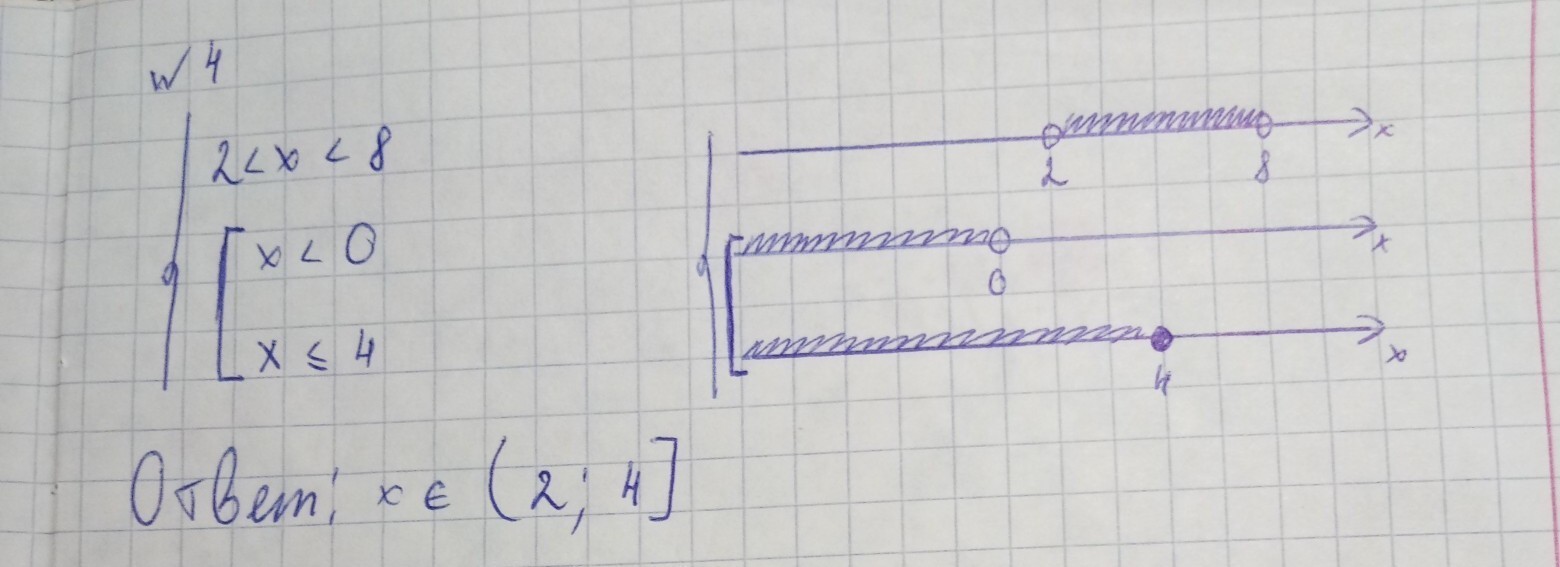 № 4
2 < x < 8
x < 0
x ≤ 4
x
2 8
x
0
x
4
Ответ: x ∈ (2; 4]